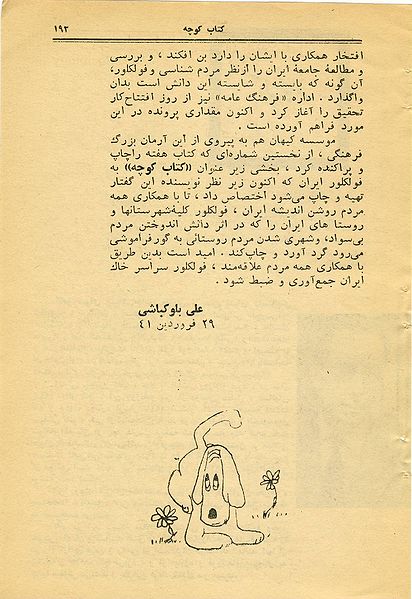 کتاب کوچه
۱۹۲
افتخار همکاری با ایشان را دارد بن افکند ، و بررسی
و مطالعهٔ جامعهٔ ایران را ازنظر مردم شناسی و فولکلور،
آن گونه که بایسته و شایسته این دانش است بدان
واگذارد . اداره «فرهنگ عامه» نیز از روز افتتاح کار
تحقیق را آغاز کرد و اکنون مقداری پرونده در این
مورد فراهم آورده است .
موسسه کیهان هم به پیروی از این آرمان بزرگ
فرهنگی ، از نخستین شماره‌ای که کتاب هفته راچاپ
و پراکنده کرد ، بخشی زیر عنوان «کتاب کوچه» به
فولکلور ایران که اکنون زیر نظر نویسنده این گفتار
تهیه و چاپ می‌شود اختصاص داد ، تا با همکاری همه
مردم روشن اندیشه ایران ، فولکلور کلیهٔ شهرستانها و
روستا های ایران را که در اثر دانش اندوختن مردم
بی‌سواد، وشهری شدن مردم روستائی به گور فراموشی
می‌رود گرد آورد و چاپ‌کند . امید است بدین طریق
با همکاری همه مردم علاقه‌مند ، فولکلور سراسر خاك
ایران جمع‌آوری و ضبط شود .
علی بلوکباشی
۲۹ فروردین ۴۱